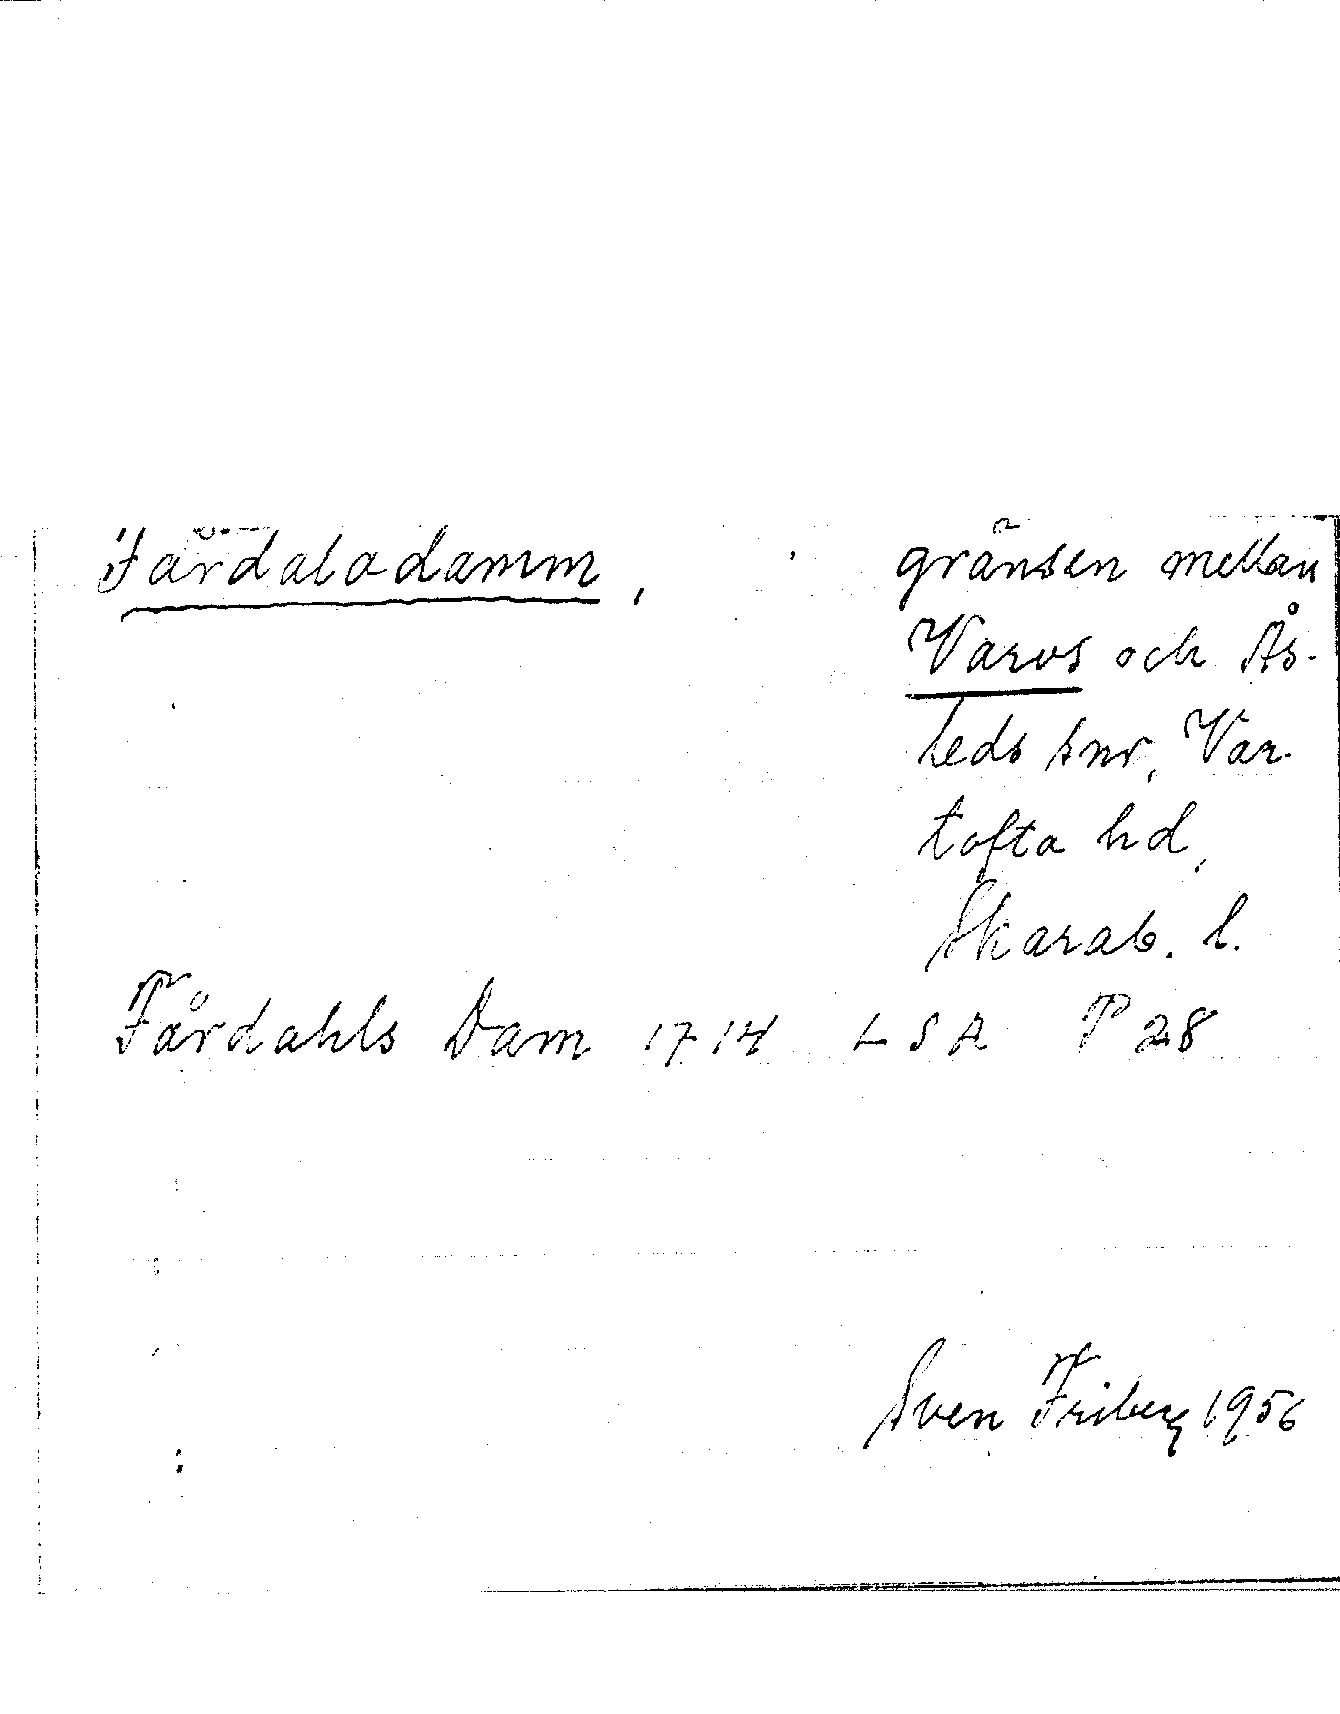 Fårdaladamm,
gränsen mellan
Varvs och Ås-
leds snr, Var-
tofta hd,
Skarab. l.
Fårdahls Dam 1714 LSA P 28
Sven Friberg 1956